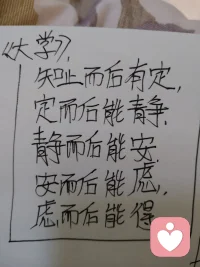 《大学》,
知止而后有定,
定而后能静,
静而后能安.
安而后能虑,
虑而后能得